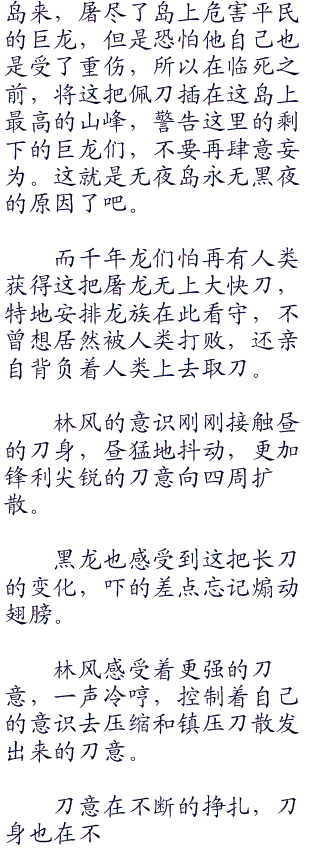 岛来，屠尽了岛上危害平民
的巨龙，但是恐怕他自己也
是受了重伤，所以在临死之
前，将这把佩刀插在这岛上
最高的山峰，警告这里的剩
下的巨龙们，不要再肆意妄
为。这就是无夜岛永无黑夜
的原因了吧。
而千年龙们怕再有人类
获得这把屠龙无上大快刀，
特地安排龙族在此看守，不
曾想居然被人类打败，还亲
自背负着人类上去取刀。
林风的意识刚刚接触昼
的刀身，昼猛地抖动，更加
锋利尖锐的刀意向四周扩
散。
黑龙也感受到这把长刀
的变化，吓的差点忘记煽动
翅膀。
林风感受着更强的刀
意，一声冷哼，控制着自己
的意识去压缩和镇压刀散发
出来的刀意。
刀意在不断的挣扎，刀
身也在不